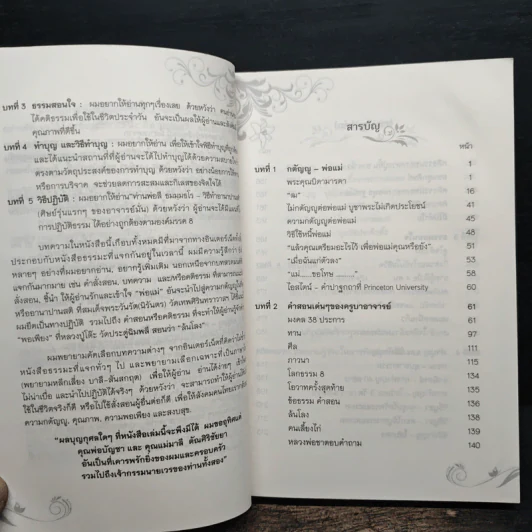 บทที่ 3 ธรรมสอนใจ : ผมอยากให้อ่านทุกๆเรื่องเลย ด้วยหวังว่า
ได้คติธรรมเพื่อใช้ในชีวิตประจำวัน อันจะเป็นผลให้ผู้อ่าน
คุณภาพที่ดีขึ้น
บทที่ 4 ทำบุญ และวิธีทำบุญ : ผมอยากให้อ่าน เพื่อให้เข้าใจพิธี
และได้แนะนำสถานที่ที่ผู้อ่านจะได้ไปทำบุญได้ด้วยความ
ตรงตามวัตถุประสงค์ของการทำบุญ ด้วยหวังว่า อย่างน้อยการให้
หรือการบริจาค จะช่วยลดการสะสมและกิเลสของจิตใจได้
บทที่ 5 วิธีปฏิบัติ : ผมอยากให้อ่าน"ท่านพ่อลี ธมมธโร
(ศิษย์รุ่นแรกๆ ของอาจารย์มั่น) ด้วยหวังว่า ผู้อ่านจะได้
การปฏิบัติธรรม ได้อย่างถูกต้องตามองค์มรรค 8
บทความในหนังสือนี้เกือบทั้งหมดมีที่มาจากทางอินเตอร์เน็ต
ประกอบกับหนังสือธรรมะที่แจกกันอยู่ในเวลานี้ ผมมีความรู้สึกว่า
หลายๆ อย่างที่ผมอยากอ่าน, อยากรู้เพิ่มเติม นอกเหนือจาก
แจกกันมากมาย เช่น คำสั่งสอน, บทความ และ/หรือคติธรรม ที่สามารถ
สั่งสอน, ชี้นำ ให้ผู้อ่านรักและเข้าใจ "พ่อแม่" อันจะนำไปสู่ความกตัญญู
หรืออานาปานสติ ที่สมเด็จพระวันรัต(นิรันตร) วัดเทพศิรินทราวาส ได้
ผมยึดเป็นทางปฏิบัติ รวมไปถึง คำสอนหรือคติธรรม ที่จะทำให้ผู้อ่านรู้จัก
"พอเพียง" ที่หลวงปู่โต๊ะ วัดประดู่ฉิมพลี สอนว่า "ล้นโลง"
ผมพยายามคัดเลือกบทความต่างๆ จากอินเตอร์เน็ตที่คิดว่า
หนังสือธรรมะที่แจกทั่วๆ ไป และพยายามเลือกเฉพาะที่เป็น
(พยายามหลีกเลี่ยง บาลี-สันสกฤต) เพื่อให้ผู้อ่าน อ่านได้ง่ายๆ
ไม่น่าเบื่อ และนำไปปฏิบัติได้จริงๆ ด้วยหวังว่า จะสามารถทำให้ผู้อ่าน
ใช้ในชีวิตจริงก็ดี หรือไปใช้สั่งสอนผู้อื่นต่อก็ดี เพื่อให้สังคมคนไทย
ความกตัญญู, คุณภาพ, ความพอเพียง และสงบสุข.
"ผลบุญกุศลใดๆ ที่หนังสือเล่มนี้จะพึงมีได้ ผมขออุทิศแด่
คุณพ่อบัญชา และ คุณแม่มาลี ตัณศิริชัยยา
อันเป็นที่เคารพรักยิ่งของผมและครอบครัว
รวมไปถึงเจ้ากรรมนายเวรของท่านทั้งสอง"
สารบัญ
หน้า
บทที่ 1 กตัญญู - พ่อแม่ 1
พระคุณบิดามารดา 1
"ฒ"
ไม่กตัญญูต่อพ่อแม่ บูชาพระไม่เกิดประโยชน์
ความกตัญญูต่อพ่อแม่ 45
วิธีใช้หนี้พ่อแม่ 48
"แล้วคุณเตรียมอะไรไว้ เพื่อพ่อแม่คุณหรือยัง" 51
"เมื่อฉันแก่ตัวลง" 53
"แม่......ขอโทษ .........." 56
ไอสไตน์ - คำปาฐกถาที่ Princeton University 57
บทที่ 2 คำสอนเด่นๆของครูบาอาจารย์ 61
มงคล 38 ประการ 61
ทาน 97
ศีล 111
ภาวนา 115
โลกธรรม 8 124
โอวาทครั้งสุดท้าย 135
ข้อธรรม คำสอน 136
ล้นโลง 138
คนเลี้ยงไก่ 139
หลวงพ่อชาตอบคำถาม 140